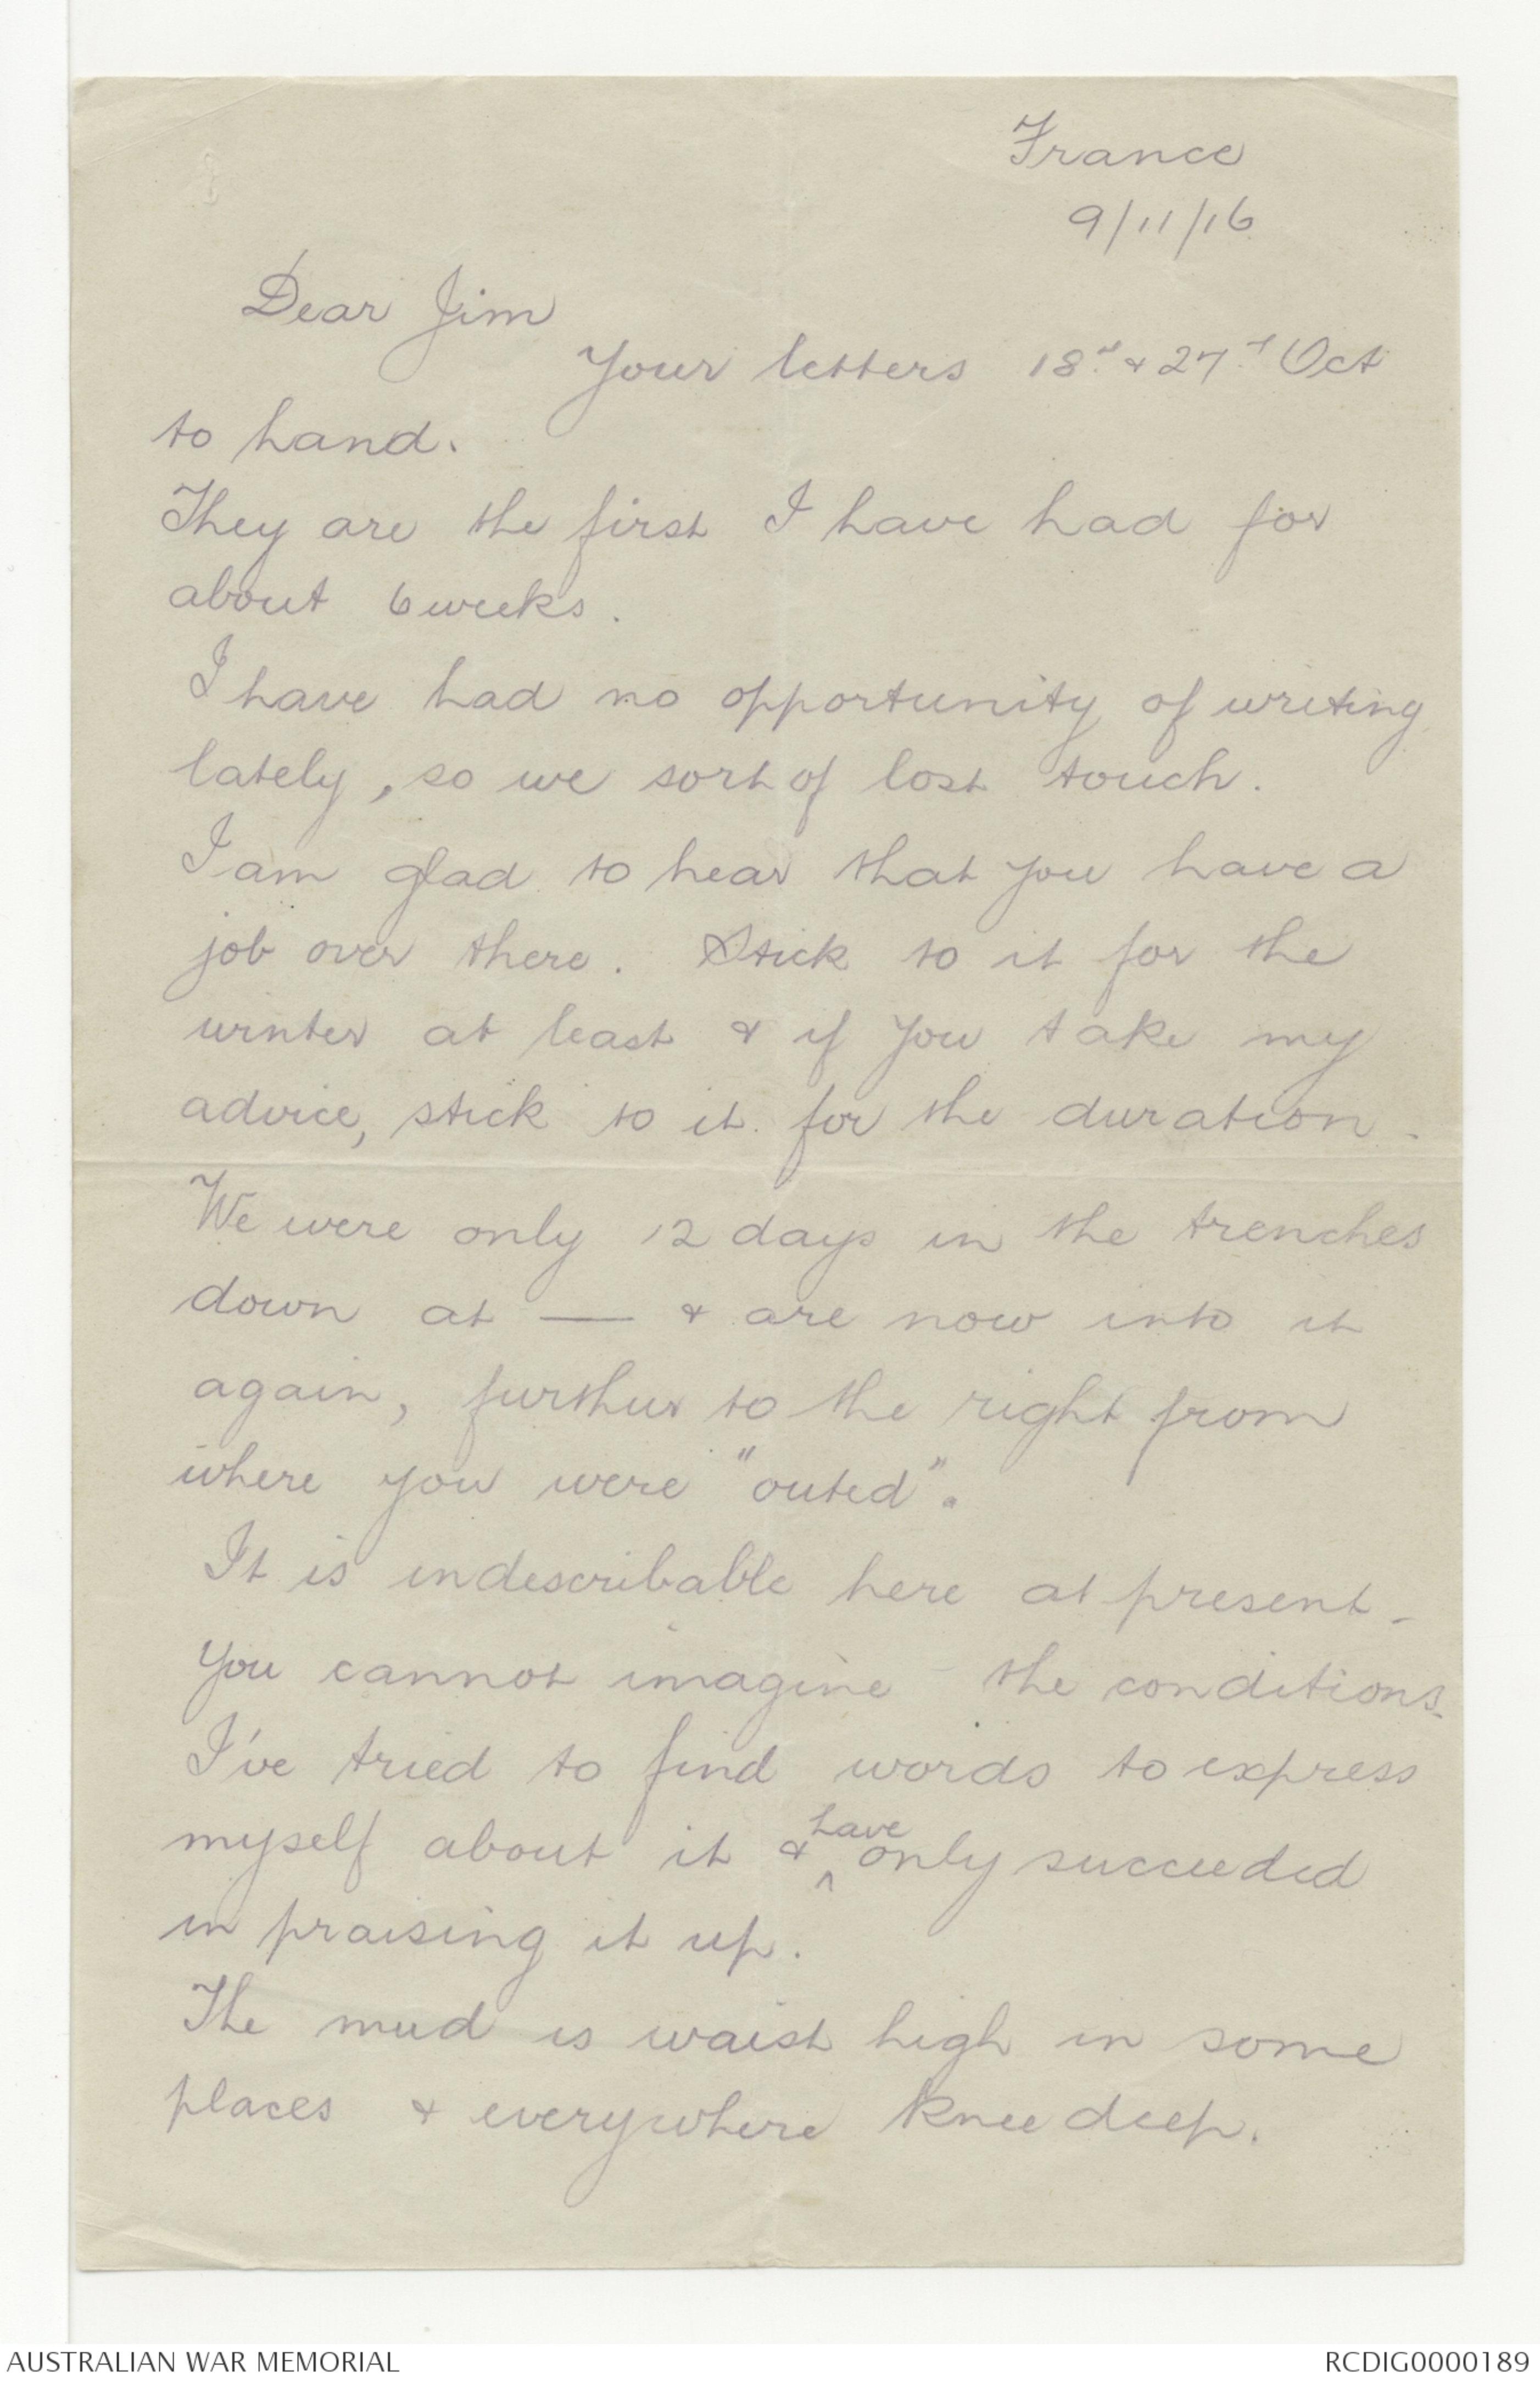 France
9/11/16
Dear Jim
Your letters 18th & 27th Oct
to hand.
They are the first I have had for
about 6 weeks.
I have had no opportunity of writing
lately, so we sort of lost touch.
I am glad to hear that you have a
job over there. Stick to it for the
winter at least & if you take my
advice, stick to it for the duration.
We were only 12 days in the trenches
down at — & are now into it
again, further to the right from
where you were "outed".
It is indescribable here at present.
You cannot imagine the conditions.
I've tried to find words to express
myself about it & have only succeeded
in praising it up.
The mud is waist high in some
places & everywhere knee deep.
AUSTRALIAN WAR MEMORIAL
RCDIG0000189